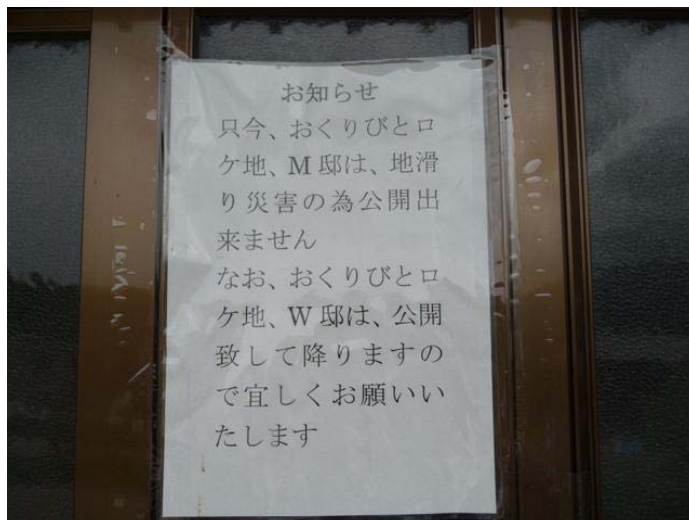 お知らせ
只今、おくりびとロ
ケ地、M邸は、地滑
り災害の為公開出
来ません
なお、おくりびとロ
ケ地、W邸は、公開
致して降りますの
で宜しくお願いい
たします